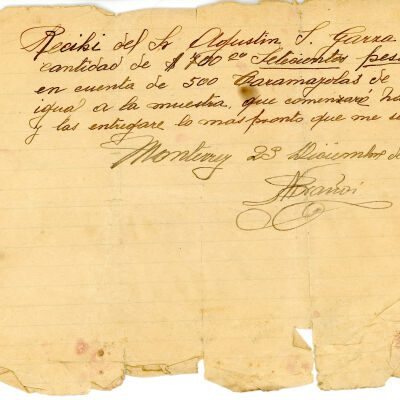 Recibi del Sr Agustin S. Garza
cantidad de $700.00 Setecientos pes
en cuenta de 500 Caramayolas de
igual a la muestra, que comenzaré ha
y las entregare lo mas pronto que me se
Monterrey 23 Diciembre d